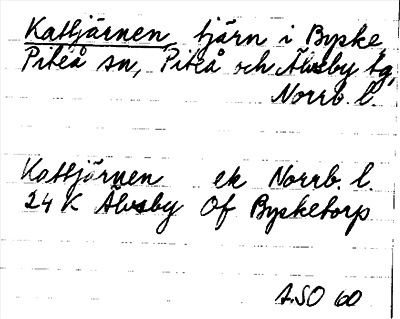 Kattjärnen tjärn i Byske,
Piteå sn, Piteå och Älvsby tg,
Norrb. l.
Kattjärnen ek Norrb. l.
24 K Älvsby Of Bysketorp
A.SO 60